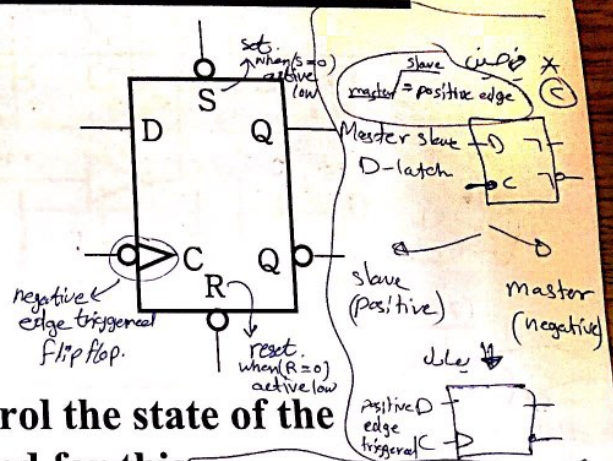 set.
when(S=0)
active
low
S
D
Q
C
Q
R
negative
edge triggered
flip flop.
reset.
when(R=0)
active low
slave
master = positive edge
C
Master slave
D-latch
D
C
slave
(positive)
master
(negative)
positive D
edge
triggered C
rol the state of the
ed for this